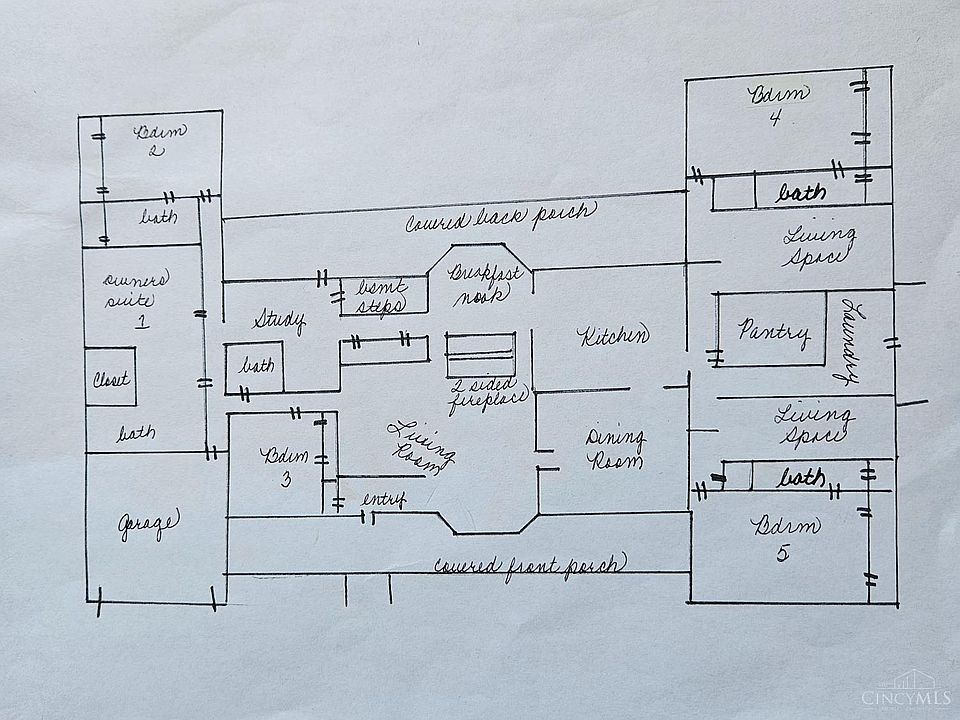 Bdrm
2
bath
owners
suite
1
Closet
bath
Garage
Covered back porch
bsmt
steps
Breakfast
nook
Study
bath
2 sided
fireplace
Kitchen
Living
Room
Bdrm
3
entry
Dining
Room
Covered front porch
Bdrm
4
bath
Living
Space
Pantry
Laundry
Living
Space
bath
Bdrm
5
CINCYMLS